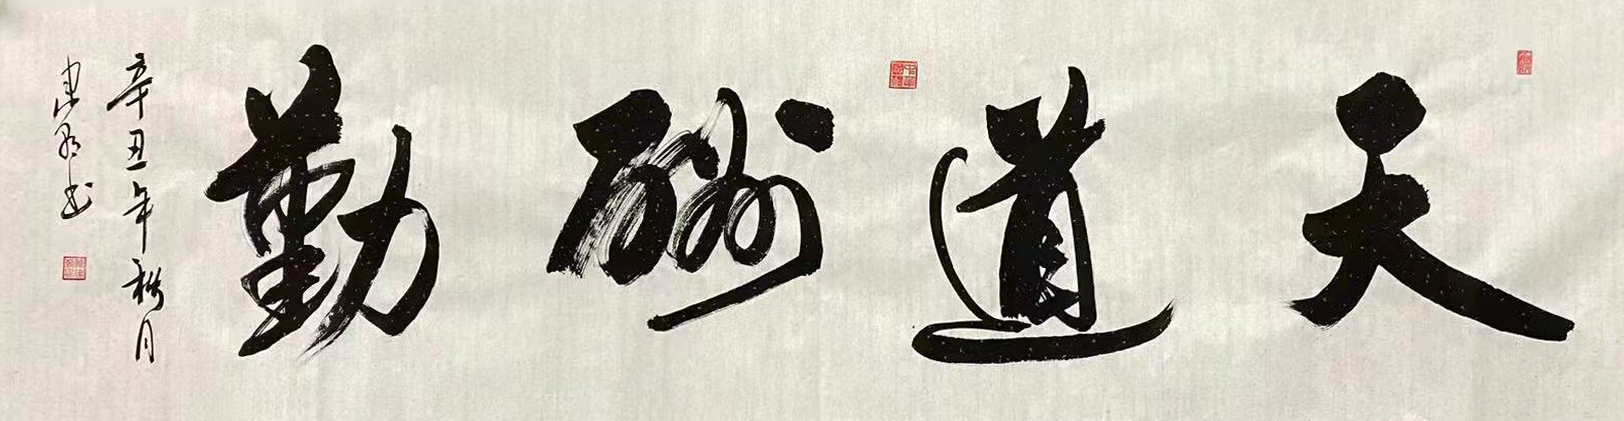 天道酬勤
辛丑年秋月
书